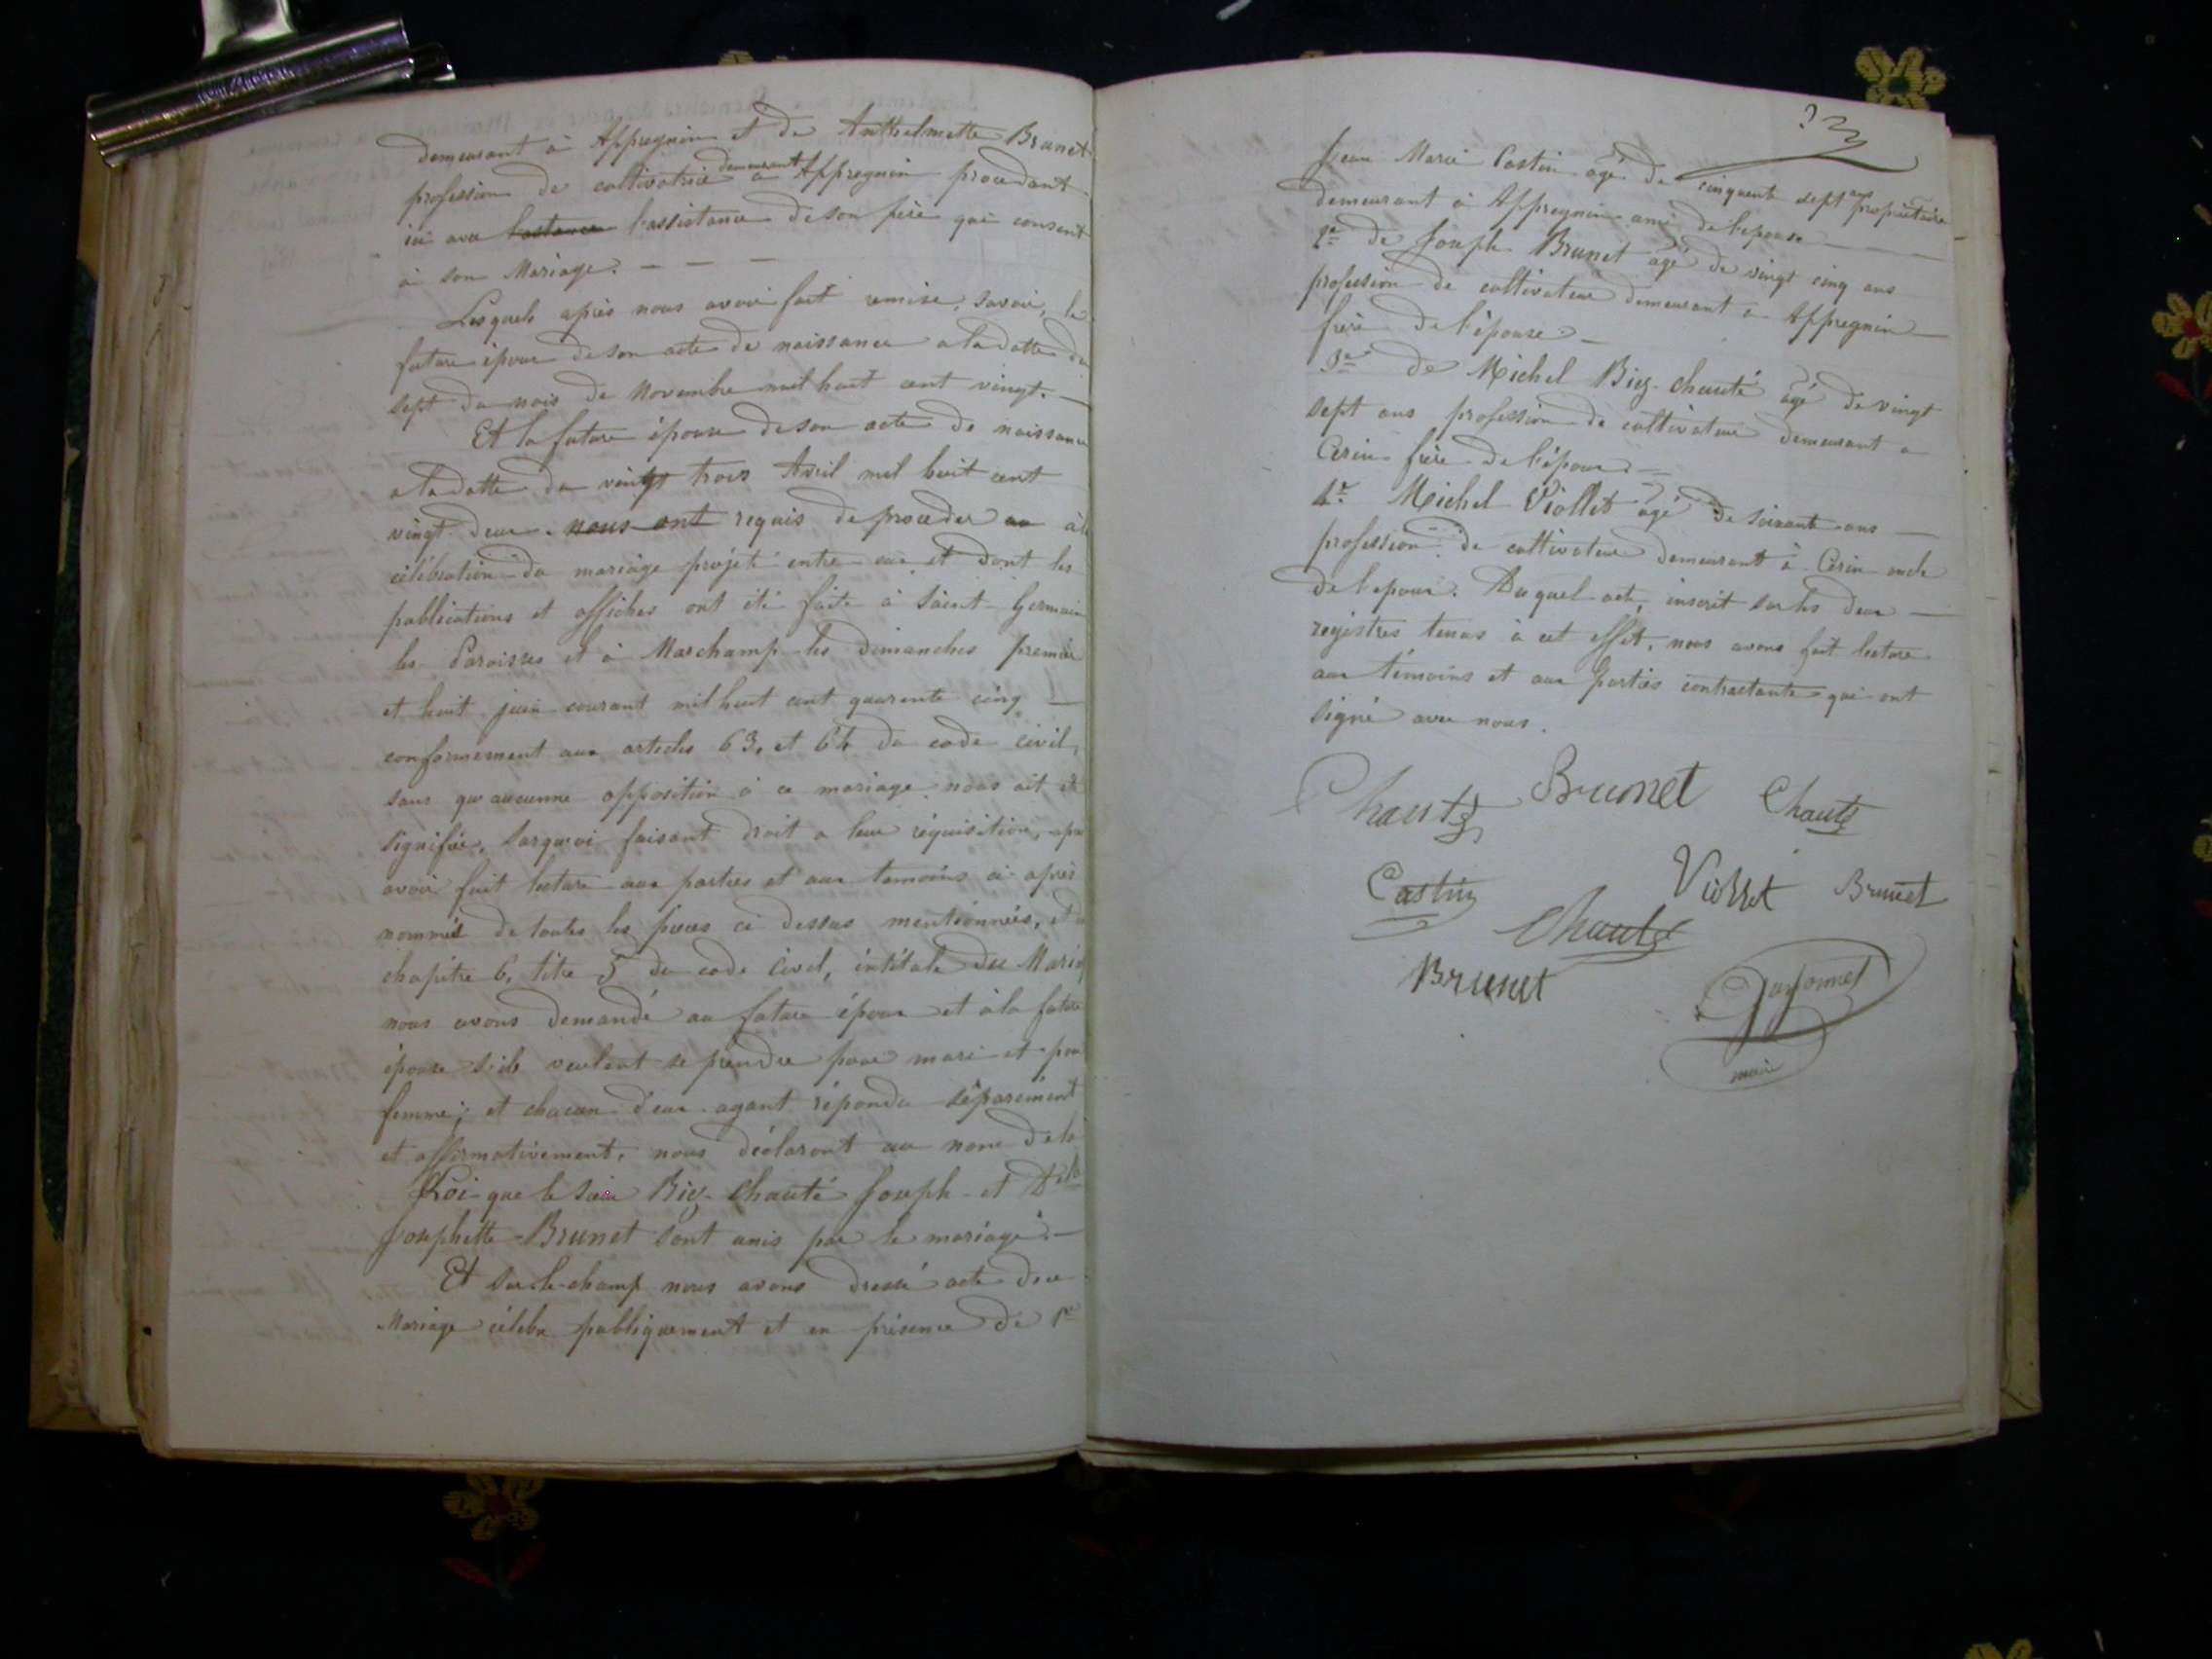 demeurant à Appregnin et de Anthelmette Brunet
profession de cultivatrice demeurant a Appregnin procedant
ici avec l'astance l'assistance de son père qui consent
à son Mariage. — — —
Lesquels après nous avoir fait remise, savoir, le
future époux de son acte de naissance a la datte du
sept du mois de Novembre mil huit cent vingt. —
Et la future épouse de son acte de naissance
a la datte du vingt trois Avril mil huit cent
vingt deux. nous ont requis de proceder au à la
célébration du mariage projeté entre eux et dont les
publications et affiches ont été faite à Saint Germain
les Paroisses et à Marchamp les dimanches premier
et huit juin courant mil huit cent quarente cinq —
conformement aux articles 63, et 64 du code civil,
sans qu'aucunne opposition à ce mariage nous ait été
signifiée, surquoi faisant droit a leur réquisition, apres
avoir fait lecture aux parties et aux temoins ci après
nommés de toutes les pieces ci dessus mentionnées, et du
chapitre 6, titre 5 du code Civil, intitulé Du Mariage,
nous avons demandé au future époux et à la future
épouse s'ils veulent se prendre pour mari et pour
femme; et chacun d'eux ayant répondu séparément
et affirmativement, nous déclaront au nom de la
Loi que le sieur Bicz-Chauté Joseph et Dlle
Josephette Brunet sont unis par le mariage. —
Et sur-le-champ nous avons dressé acte du
Mariage célébré publiquement et en présence de 1er
Jean Marie Castin agé de cinquente sept ans propriétaire
demeurant à Appregnin ami de l'epouse —
2e de Joseph Brunet agé de vingt cinq ans
profession de cultivateur demeurant à Appregnin —
frère de l'épouse —
3e de Michel Bicz-chauté âgé de vingt
sept ans profession de cultivateur demeurant a
Cerin frère de l'époux. —
4e Michel Viollet agé de soixante ans —
profession de cultivateur demeurant à Cerin oncle
de l'epoux. Duquel acte, inscrit sur les deux —
registres tenus à cet effet, nous avons fait lecture
aux témoins et aux parties contractante qui ont
signé avec nous.
Brunet
Castin Viollet Brunet
Brunet
maire